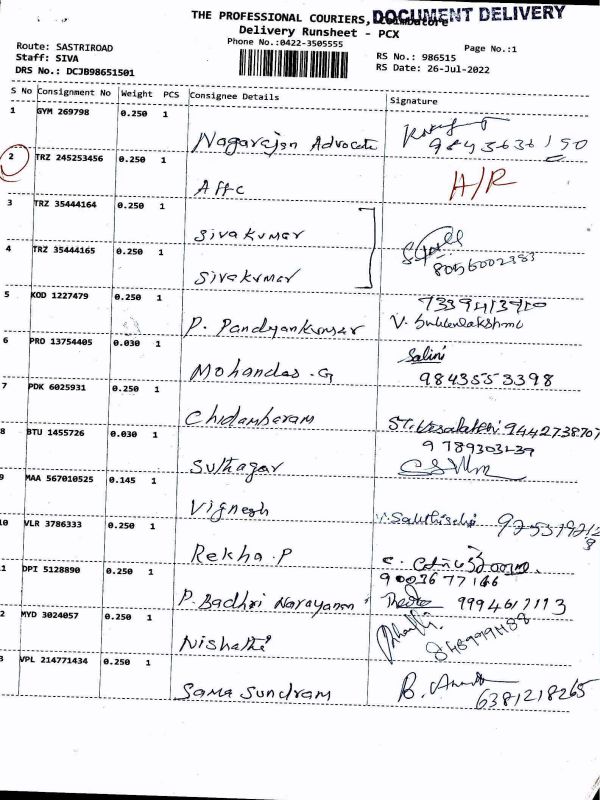 THE PROFESSIONAL COURIERS, Coimbatore
DOCUMENT DELIVERY
Delivery Runsheet - PCX
Phone No.:0422-3505555
Page No.:1
Route: SASTRIROAD
Staff: SIVA
DRS No.: DCJB98651501
RS No.: 986515
RS Date: 26-Jul-2022
S No Consignment No Weight PCS Consignee Details Signature
1 GYM 269798 0.250 1
Nagarajan Advocate
2 TRZ 245253456 0.250 1
H/R
3 TRZ 35444164 0.250 1
Sivakumar
4 TRZ 35444165 0.250 1
Sivakumar 8056002383
5 KOD 1227479 0.250 1
P. Pandyankumar
6 PRO 13754405 0.030 1
Salini
Mohandas.G 9843553398
7 PDK 6025931 0.250 1
Chidambaram 9442738707
8 BTU 1455726 0.030 1
Suthagar
9 MAA 567010525 0.145 1
Vignesh
10 VLR 3786333 0.250 1
Rekha.P
1 DPI 5128890 0.250 1
P. Badhri Narayanan 9994617113
2 MYD 3024057 0.250 1
Nishathi
3 VPL 214771434 0.250 1
Sama Sundram 6381218265